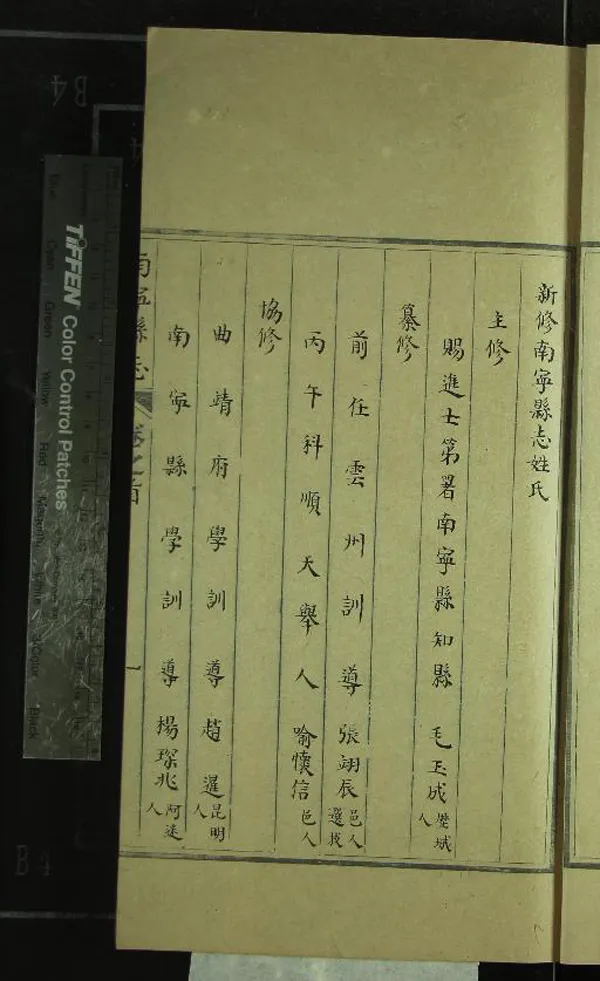 新修南寧縣志姓氏
主修
賜進士第署南寧縣知縣 毛玉成 人
纂修
前任雲州訓導張翊辰 邑人選拔
丙午科順天舉人 喻懷信 邑人
協修
曲靖府學訓導趙暹 昆明人
南寧縣學訓導楊琛兆 阿迷人
南寧縣志 卷之首 一
TIFFEN Color Control Patches
Blue Cyan Green Yellow Red Magenta White 3/Color Black
B4
B4